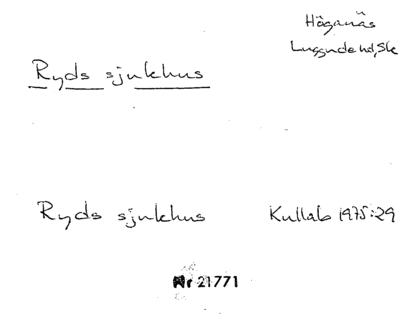 Höganäs
Luggude hd, Sk
Ryds sjukhus
Ryds sjukhus Kullab 1975:29
Nr 21771